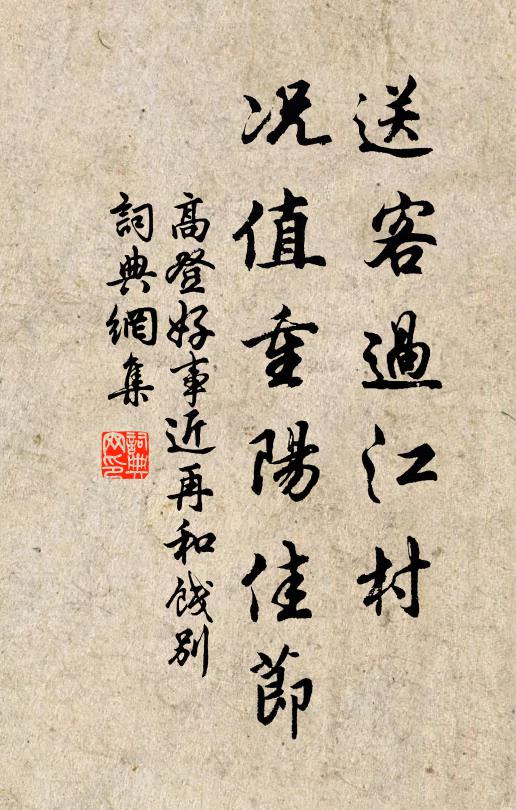 送客過江村
况值重陽佳節
高登好事近再和餞别
詞典網集
詞典网印